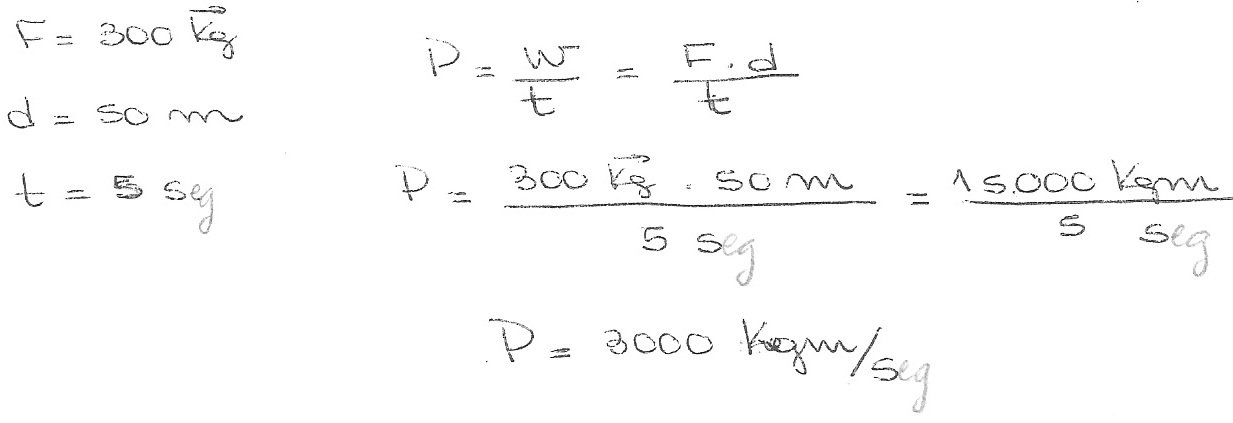 F = 300 K⃗g
d = 50 m
t = 5 seg
P = W/t = F . d/t
P = 300 K⃗g . 50 m/5 seg = 15.000 Kgm/5 seg
P = 3000 Kgm/seg